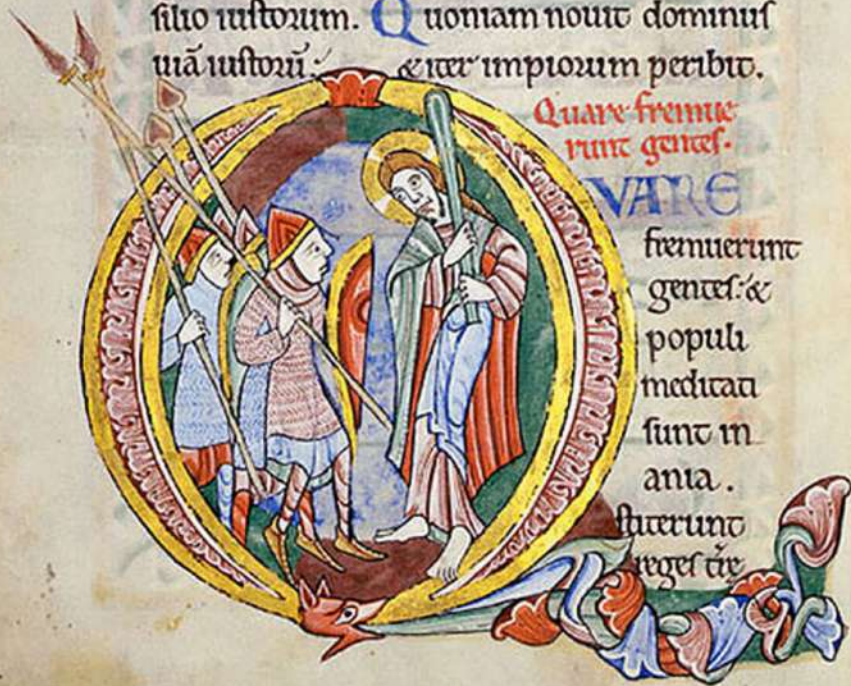 silio iustorum. Quoniam nouit dominus
uiā iustorū: & iter impiorum peribit.
Quare fremue
runt gentes.
QVARE
fremuerunt
gentes: &
populi
meditati
sunt in
ania.
stiterunt
reges tr̄e